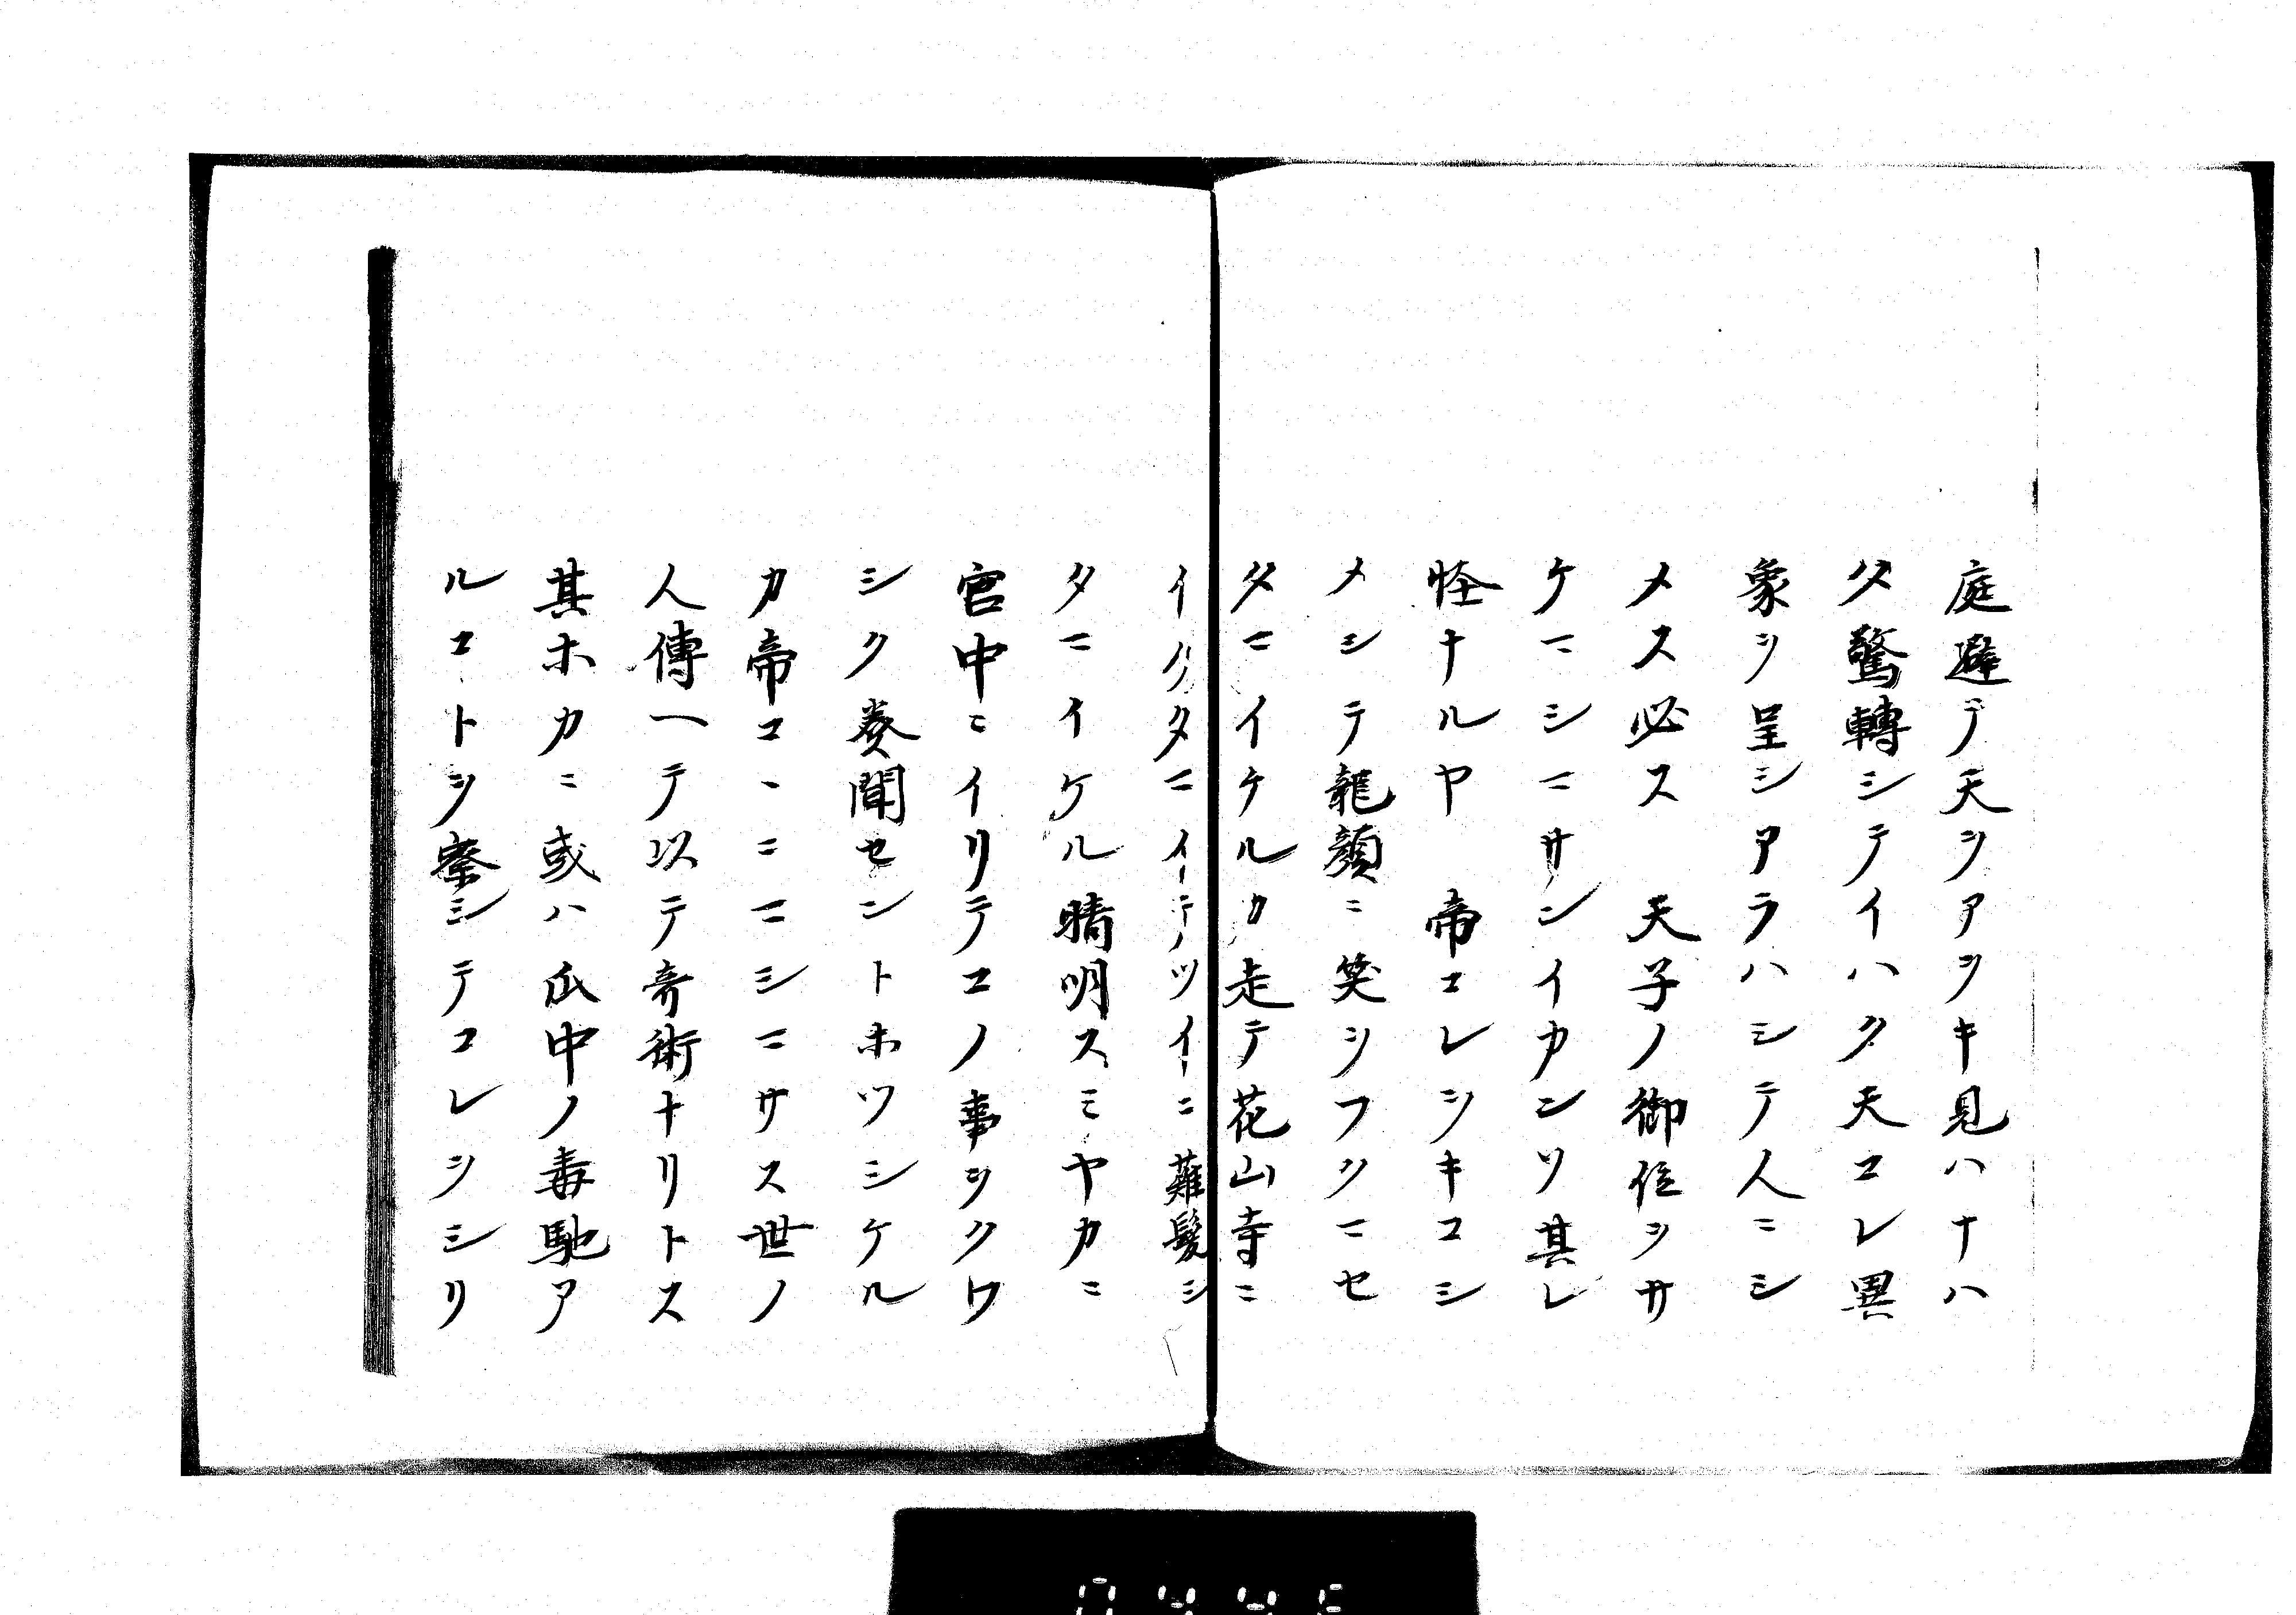 庭避テ天ヲアヲキ見ハナハ
タ驚轉シテイハク天コレ異
象ヲ呈シアラハシテ人ニシ
メス必ス　天子ノ御位ヲサ
ケマシマサンイカンソ其レ
怪ナルヤ　帝コレヲキコシ
メシテ龍顔ニ笑ヲフクマセ
タマイケルカ走テ花山寺ニ
イタタマイテツイニ薙髪シ
タマイケル晴明スミヤカニ
宮中ニイリテコノ事ヲクワ
シク奏聞セントホツシケル
カ帝コヽニマシマサス世ノ
人傳ヘテ以テ奇術ナリトス
其ホカニ或ハ瓜中ノ毒馳ア
ルコトヲ察シテコレヲシリ